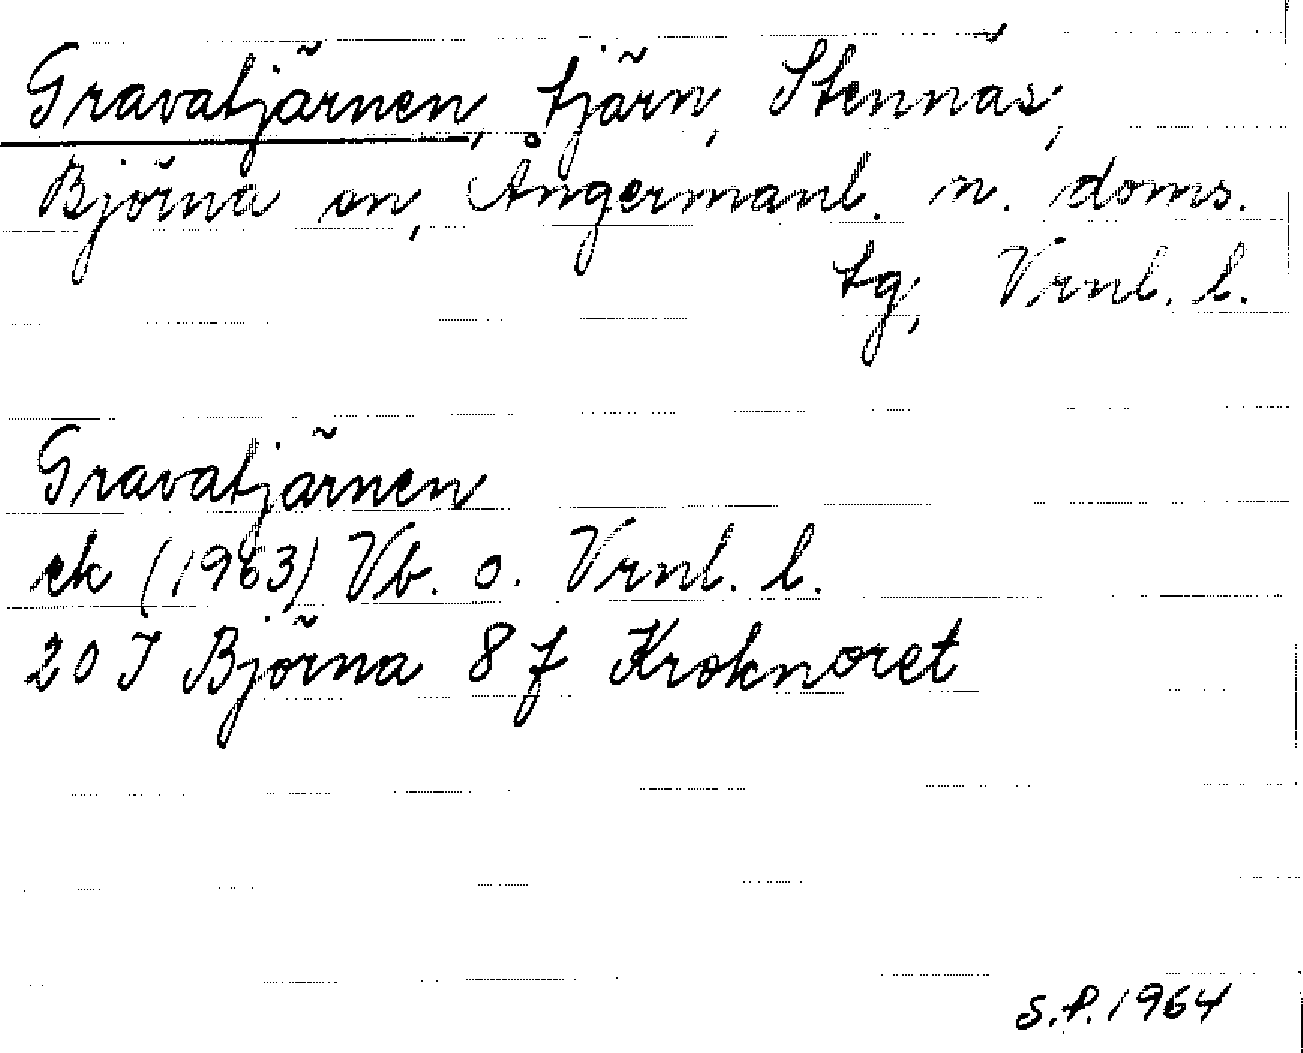 Gravatjärnen, tjärn, Stennäs,
Björna sn, Ångermanl. n. doms.
tg, Vrnl. l.
Gravatjärnen
ek (1963) Vb. o. Vrnl. l.
20 I Björna 8 f Kroknoret
S.P. 1964